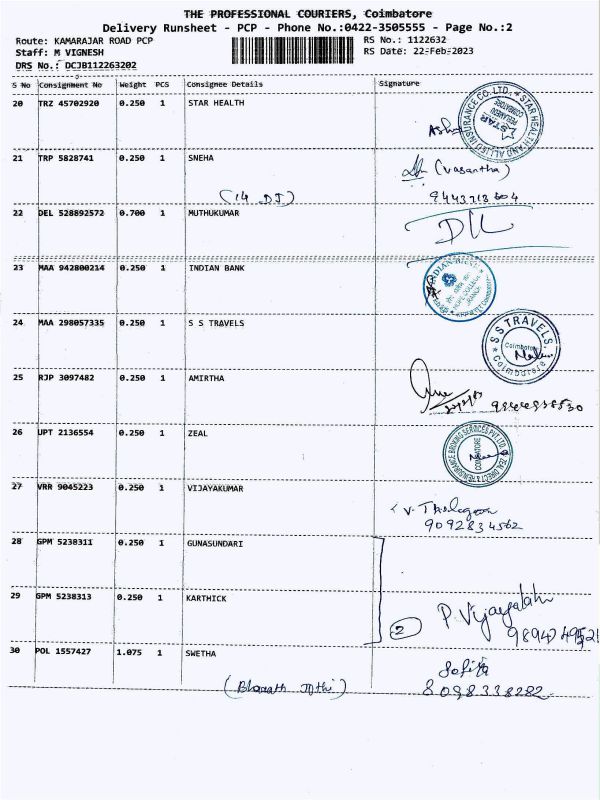 THE PROFESSIONAL COURIERS, Coimbatore
Delivery Runsheet - PCP - Phone No.:0422-3505555 - Page No.:2
Route: KAMARAJAR ROAD PCP RS No.: 1122632
Staff: M VIGNESH RS Date: 22-Feb-2023
DRS No.: DCJB112263202
S No Consignment No Weight PCS Consignee Details Signature
20 TRZ 45702920 0.250 1 STAR HEALTH
STAR HEALTH AND ALLIED INSURANCE CO. LTD.
STAR
21 TRP 5828741 0.250 1 SNEHA (Vasantha)
(14 DJ)
22 DEL 528892572 0.700 1 MUTHUKUMAR
23 MAA 942800214 0.250 1 INDIAN BANK
INDIAN BANK
24 MAA 298057335 0.250 1 S S TRAVELS
S S TRAVELS, Coimbatore
25 RJP 3097482 0.250 1 AMIRTHA
26 UPT 2136554 0.250 1 ZEAL
COIMBATORE
27 VRR 9045223 0.250 1 VIJAYAKUMAR
9092834562
28 GPM 5238311 0.250 1 GUNASUNDARI
29 GPM 5238313 0.250 1 KARTHICK
2
30 POL 1557427 1.075 1 SWETHA
8098338282